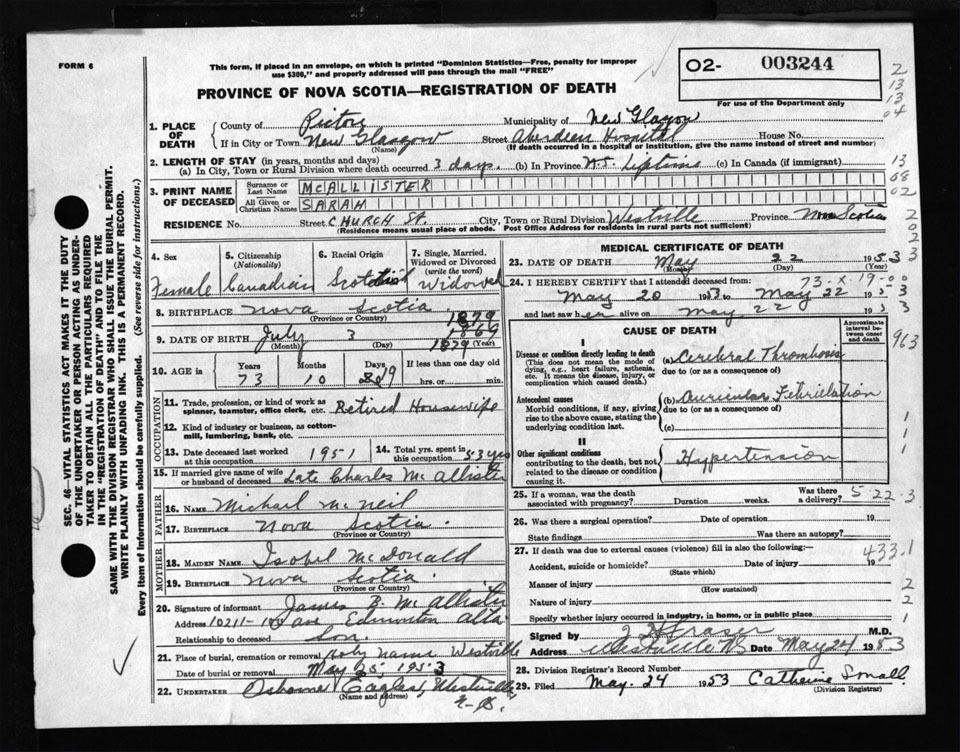 FORM 6
This form, if placed in an envelope, on which is printed "Dominion Statistics—Free, penalty for improper
use $300," and properly addressed will pass through the mail "FREE"
PROVINCE OF NOVA SCOTIA—REGISTRATION OF DEATH
02- 003244
For use of the Department only
2
13
13
04
1. PLACE OF DEATH
County of Pictou Municipality of New Glasgow
If in City or Town New Glasgow Street Aberdeen Hospital House No.
(Name) (If death occurred in a hospital or institution, give the name instead of street and number)
2. LENGTH OF STAY (in years, months and days)
(a) In City, Town or Rural Division where death occurred 3 days. (b) In Province N.S. Lifetime (c) In Canada (if immigrant)
13
08
02
3. PRINT NAME OF DECEASED
Surname or Last Name McALLISTER
All Given or Christian Names SARAH
RESIDENCE No. Street CHURCH St. City, Town or Rural Division Westville Province Nova Scotia
(Residence means usual place of abode. Post Office Address for residents in rural parts not sufficient)
2
02
2
3
SEC. 46—VITAL STATISTICS ACT MAKES IT THE DUTY
OF THE UNDERTAKER OR PERSON ACTING AS UNDER-
TAKER TO OBTAIN ALL THE PARTICULARS REQUIRED
IN THE "REGISTRATION OF DEATH" AND TO FILE THE
SAME WITH THE DIVISION REGISTRAR WHO SHALL ISSUE THE BURIAL PERMIT.
WRITE PLAINLY WITH UNFADING INK. THIS IS A PERMANENT RECORD.
Every item of information should be carefully supplied. (See reverse side for instructions.)
4. Sex
Female
5. Citizenship
(Nationality)
Canadian
6. Racial Origin
Scottish
7. Single, Married,
Widowed or Divorced
(write the word)
Widowed
8. BIRTHPLACE Nova Scotia
(Province or Country)
1879
9. DATE OF BIRTH July 3 1869
(Month) (Day) 1879 (Year)
10. AGE in
Years Months Days If less than one day old
73 10 19 hrs. or min.
OCCUPATION
11. Trade, profession, or kind of work as
spinner, teamster, office clerk, etc. Retired Housewife
12. Kind of industry or business, as cotton-
mill, lumbering, bank, etc.
13. Date deceased last worked at this occupation 1951
14. Total yrs. spent in this occupation 53 yrs
15. If married give name of wife
or husband of deceased Late Charles McAllister
FATHER
16. NAME Michael McNeil
17. BIRTHPLACE Nova Scotia.
(Province or Country)
MOTHER
18. MAIDEN NAME Isobel McDonald
19. BIRTHPLACE Nova Scotia
(Province or Country)
20. Signature of informant James B. McAllister
Address Ave Edmonton Alta
Relationship to deceased Son.
21. Place of burial, cremation or removal Holy Name Westville
Date of burial or removal May 25, 1953
22. UNDERTAKER Eagles, Westville
(Name and address)
N.S.
MEDICAL CERTIFICATE OF DEATH
23. DATE OF DEATH May 22 1953
(Month) (Day) (Year)
3
24. I HEREBY CERTIFY that I attended deceased from:
73-X-19-00
May 20 1953 to May 22 1953
and last saw her alive on May 22 1953
CAUSE OF DEATH
Approximate interval between onset and death
963
I
Disease or condition directly leading to death
(This does not mean the mode of
dying, e.g., heart failure, asthenia,
etc. It means the disease, injury, or
complication which caused death.)
(a) Cerebral Thrombosis
due to (or as a consequence of)
Antecedent causes
Morbid conditions, if any, giving
rise to the above cause, stating the
underlying condition last.
(b) Auricular Fibrillation
due to (or as a consequence of)
(c)
1
1
1
II
Other significant conditions
contributing to the death, but not
related to the disease or condition
causing it.
Hypertension
25. If a woman, was the death
associated with pregnancy? Duration weeks. Was there a delivery?
5-22-3
26. Was there a surgical operation? Date of operation 19
State findings Was there an autopsy?
27. If death was due to external causes (violence) fill in also the following:—
433.1
Accident, suicide or homicide? Date of injury 19
(State which)
Manner of injury
(How sustained)
2
Nature of injury
2
Specify whether injury occurred in industry, in home, or in public place
1
Signed by Fraser M.D.
Address Westville NS Date May 24 1953
28. Division Registrar's Record Number
29. Filed May. 24 1953 Catherine Small.
(Division Registrar)